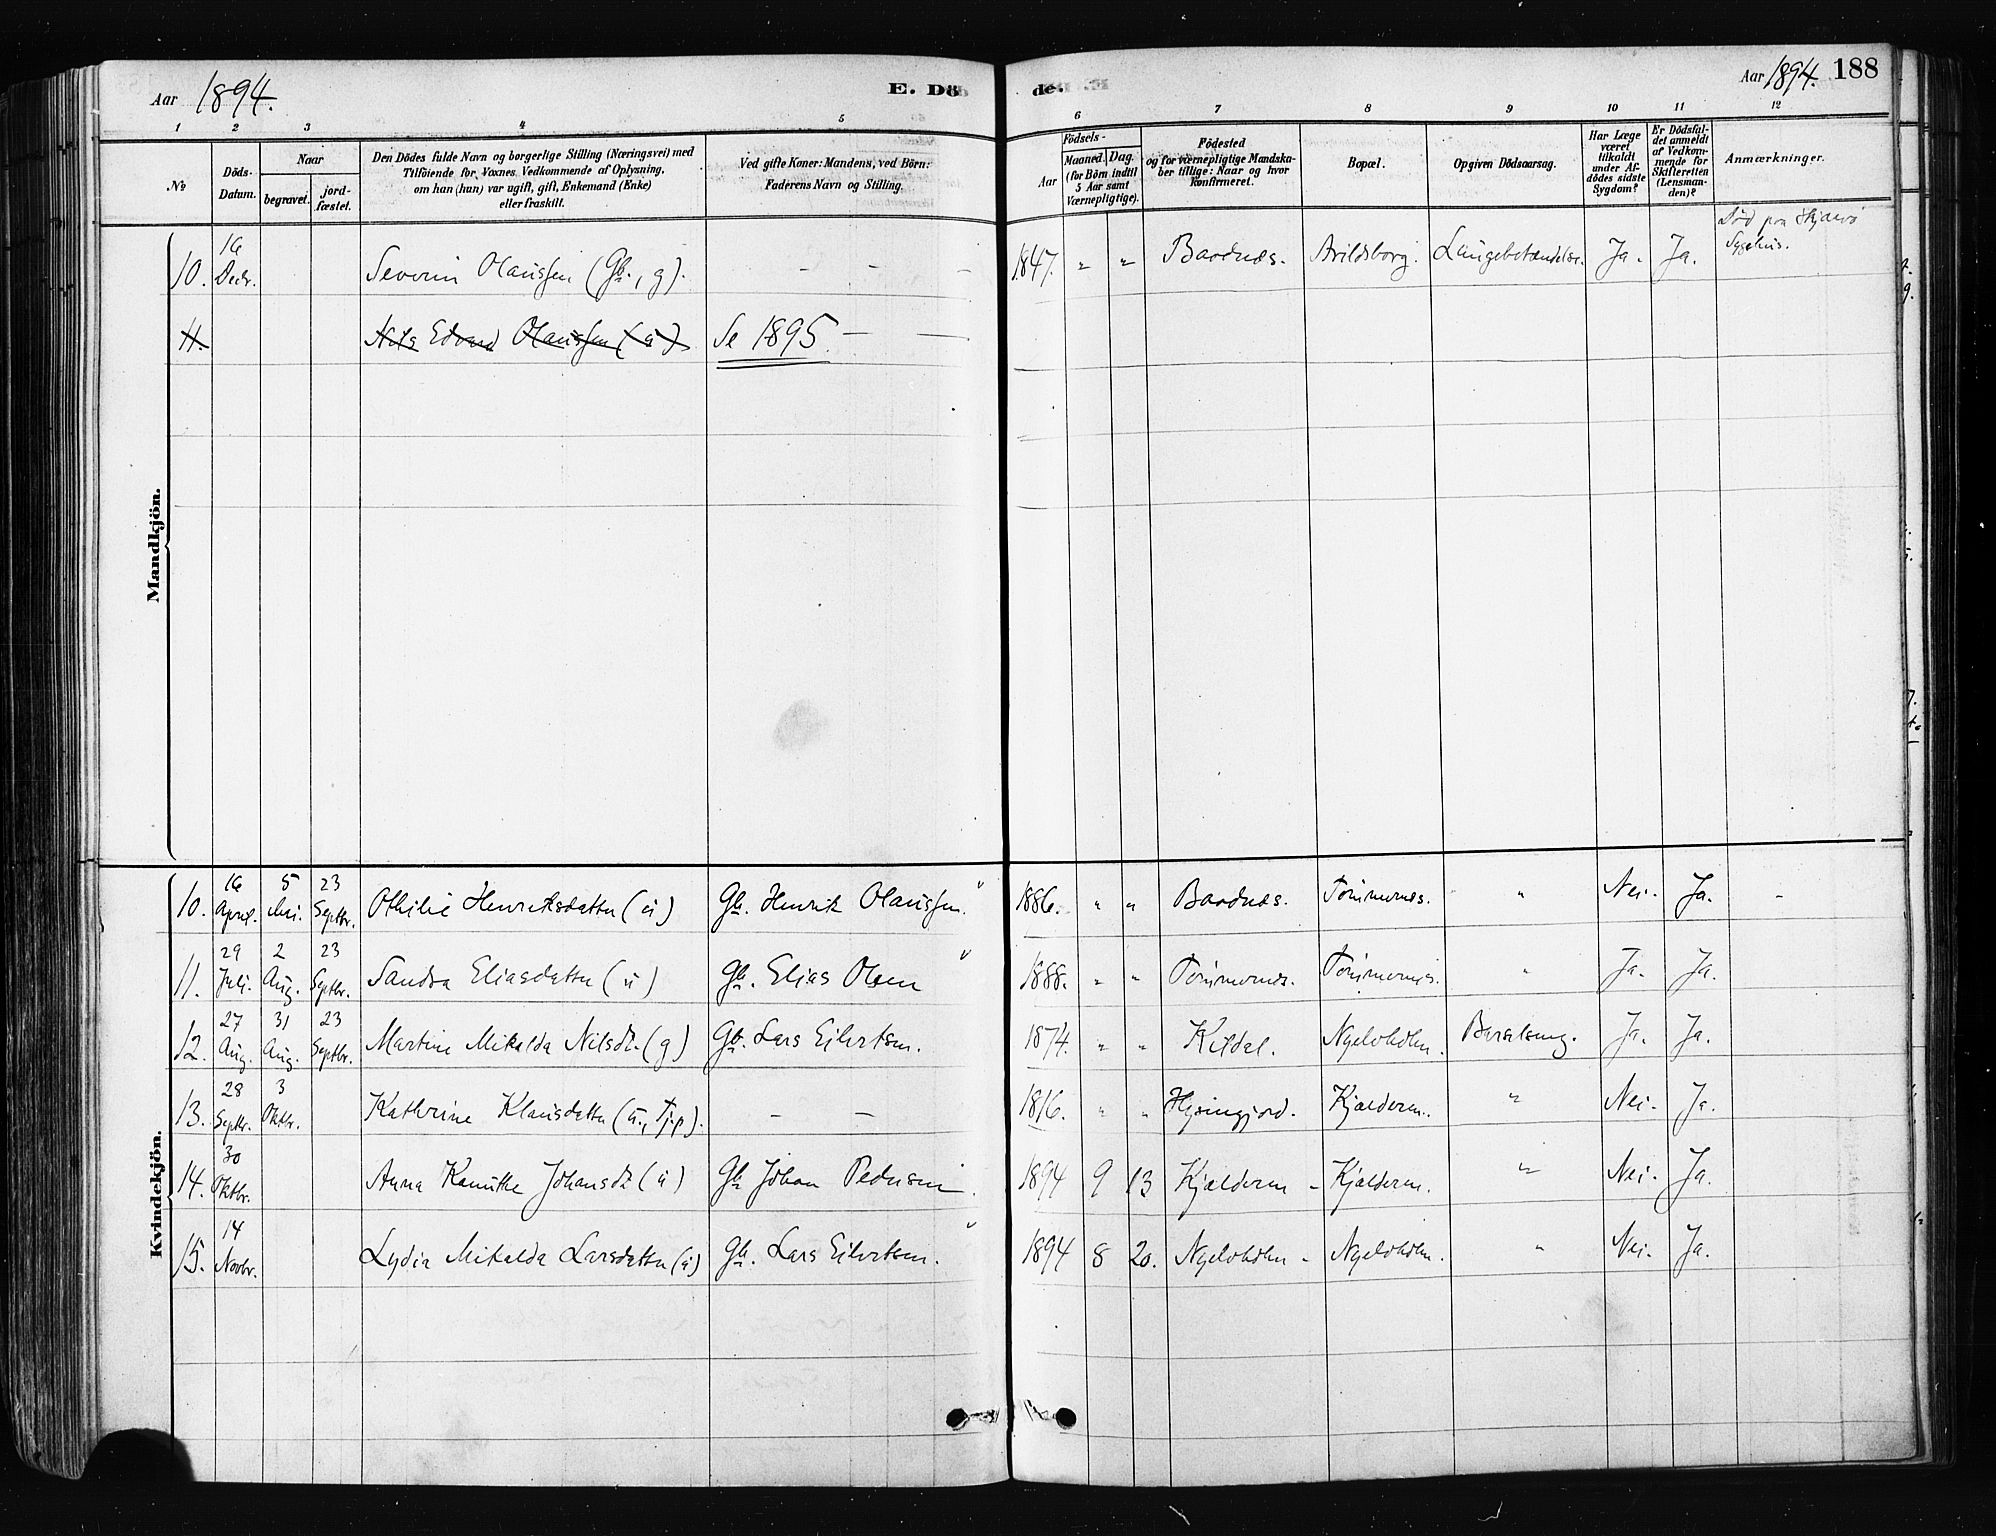 Aar 1894. E. Dö
de. Aar 1894. 188
1 2 3 4 5 6 7 8 9 10 11 12
No
Döds-
Datum.
Naar
begravet.
jord-
fæstet.
Den Dödes fulde Navn og borgerlige Stilling (Næringsvei) med
Tilföiende for Voxnes Vedkommende af Oplysning,
om han (hun) var ugift, gift, Enkemand (Enke)
eller fraskilt.
Ved gifte Koner: Mandens, ved Börn:
Faderens Navn og Stilling.
Födsels-
Aar
Maaned. Dag.
(for Börn indtil
5 Aar samt
Værnepligtige).
Födested
og for værnepligtige Mandska-
ber tillige: Naar og hvor
konfirmeret.
Bopæl.
Opgiven Dödsaarsag.
Har Læge
været
tilkaldt
under Af-
dödes sidste
Sygdom?
Er Dödsfal-
det anmeldt
af Vedkom-
mende for
Skifteretten
(Lensman-
den)?
Anmærkninger.
Mandkjön.
10. 16 Decbr. Severin Olaussen (Gb., g). - - - - 1847. " " Baodnæs. Avildsborg. Lungebetændelse. Ja. Ja. Död paa Skjærvö
Sygehus.
11. Nils Edvard Olaussen (u) Se 1895 - -
Kvindekjön.
10. 16 April. 5 Mai. 23 Septbr. Othilie Henriksdatter (u) Gb. Henrik Olaussen. 1886. " " Baodnæs. Tömmernes. " Nei. Ja. -
11. 29 Juli. 2 Aug. 23 Septbr. Sandra Eliasdatter (u) Gb. Elias Olsen 1888. " " Tömmernes. Tömmernes. " Ja. Ja.
12. 27 Aug. 31 Aug. 23 Septbr. Martine Mikalda Nilsdt. (g) Gb. Lars Eilertsen. 1874. " " Kildal. Ngeloholm. Barselseng. Ja. Ja.
13. 28 Septbr. 3 Oktbr. Kathrine Klausdatter (u., Tj.p). - - 1816. " " Kjælderen. " Nei. Ja.
14. 30 Oktbr. Anna Kamitte Johansdt (u) Gb Johan Pedersen. 1894 9 13 Kjælderen - Kjælderen. " Nei. Ja.
15. 14 Novbr. Lydia Mikalda Larsdatter (u) Gb. Lars Eilertsen. 1894 8 20. Ngeloholm - Ngeloholm. " Nei. Ja.